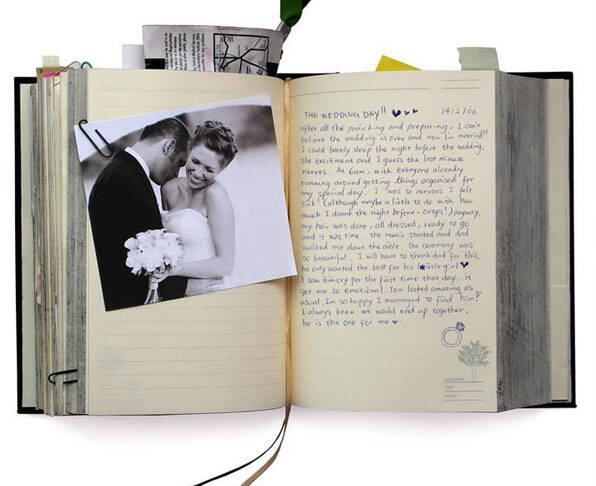 THE WEDDING DAY!! ♥♥♥ 14/2/06
after all the panicking and preparing, I can't
believe the wedding is over and now Im married!!
I could barely sleep the night before the wedding,
the excitment and I guess the last minute
nerves. At 6am, with everyone already
running around getting things organised for
my special day. I was so nervous I felt
sick! (although maybe a little to do with how
much I drank the night before - oops!) anyway,
my hair was done, all dressed, ready to go
and it was time. the music started and dad
walked me down the aisle. The ceremony was
so beautiful, I will have to thank dad for this,
he only wanted the best for his little girl ♥
I saw him cry for the first time that day. It
got me so emotional. Tom looked amazing as
usual, Im so happy I managed to find him!
I always knew we would end up together,
he is the one for me ♥